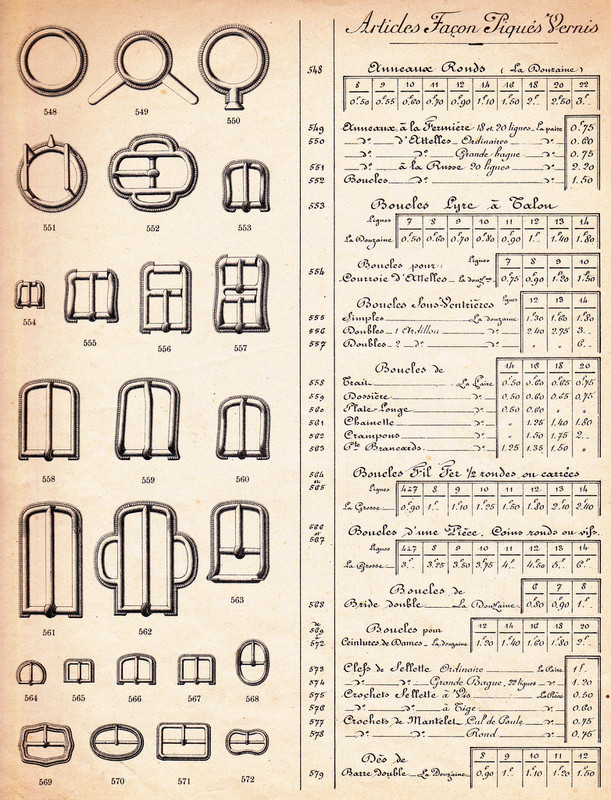 548 549 550
551 552 553
554 555 556 557
558 559 560
561 562 563
564 565 566 567 568
569 570 571 572
Articles Façon Piqués Vernis
548 Anneaux Ronds (La Douzaine)
8 9 10 10 11 12 14 18 20 22
0.50 0.55 0.60 0.70 0.90 1.10 1.50 2.- 2.50 3.-
549 Anneaux à la Fermière 18 et 20 lignes La paire 0.75
550 _d°_ d'Attelles _ Ordinaires _ d° _ 0.60
_d°_ _d°_ Grande bague _ d° _ 0.75
551 _d°_ à la Russe 20 lignes _ d° _ 2.20
552 Boucles _ d° _ d° _ 1.50
553 Boucles Lyre à Talon
Lignes 7 8 9 10 11 12 13 14
La Douzaine 0.50 0.60 0.70 0.80 0.90 1.- 1.40 1.80
554 Boucles pour: Lignes 7 8 9 10
Courroie D'Attelles _ La douz.ne 0.75 0.90 1.20 1.50
Boucles Sous-Ventrières lignes 12 13 14
555 Simples _ La douzaine 1.30 1.60 1.80
556 Doubles _ 1 Ardillon _ d° _ 2.40 2.75 3..
557 Doubles _ 2 _ d° _ d° _ " " 6..
Boucles de 14 16 18 20
558 Trait _ La Paire 0.50 0.60 0.65 0.75
559 Dossière _ d° _ 0.50 0.60 0.65 0.75
560 Plate Longe _ d° _ 0.50 0.60 " "
561 Chainette _ d° _ " 1.25 1.40 1.80
562 Crampons _ d° _ " 1.50 1.75 2..
563 Pte Brancards _ d° _ 1.25 1.35 1.50 "
564 et 565 Boucles Fil Fer 1/2 rondes ou carrées
Lignes 4 à 7 8 9 10 11 12 13 14
La Grosse 0.90 1.- 1.10 1.25 1.50 1.80 2.10 2.40
566 et 567 Boucles d'une Pièce, Coins ronds ou vifs.
Lignes 4 à 7 8 9 10 11 12 13 14
La Grosse 3.- 3.25 3.50 3.75 4.- 4.50 5.- 6.-
Boucles de 6 7 8
568 Bride double _ La Douzaine 0.80 0.90 1.-
de 569 à 572 Boucles pour 12 14 16 18 20
Ceintures de Dames _ La douzaine 1.20 1.40 1.60 1.80 2.-
573 Clefs de Sellette Ordinaire _ La Paire 1f.
574 _d°_ _d°_ Grande Bague, 22 lignes _ d° _ 1.20
575 Crochets Sellette à Vis _ La Pièce 0.50
576 _d°_ _d°_ à Tige _ d° _ 0.60
577 Crochets de Mantelet Cul de Poule _ d° _ 0.75
578 _d°_ _d°_ Rond _ d° _ 0.75
Dés de 8 9 10 11 12
579 Barre double _ La Douzaine 0.90 1.- 1.10 1.20 1.50